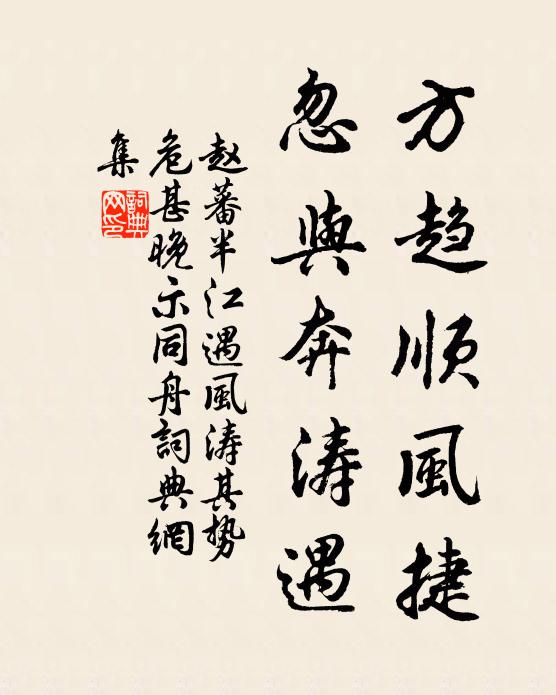 方趋顺風捷
忽與奔涛遇
赵蕃半江遇風涛其势
危甚晚示同舟詞典網
集
詞典网印